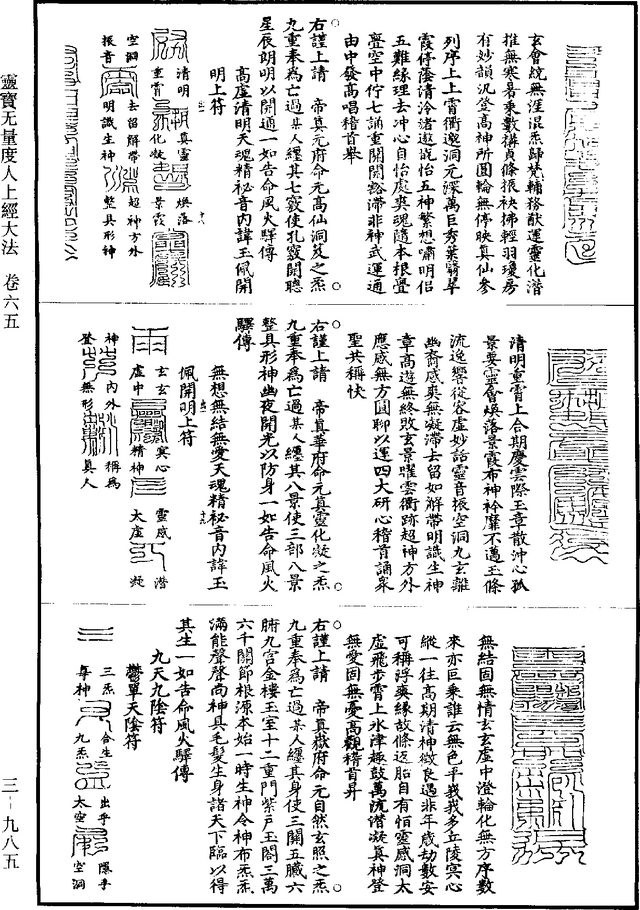 玄會統無涯混炁歸梵輔務猷運靈化潛
推無寒暑乘數構貞條振袂拂輕羽瓊房
有妙韻汎登高神所圓輪無停映真仙參
列序上上霄衢邈洞元深萬巨秀葉翳華
霞停蔭清泠渚遨戲怡五神繁想嘯明侶
五難緣理去沖心自怡處爽魂隨本根亹
亹空中佇七誦重關開豁滯非神武運通
由中發高唱稽首舉
右謹上請　帝真元府命元高仙洞笈之炁
九重奉為亡過某人纏其七竅使孔竅開聰
星辰朗明以開通一如告命風火驛傳
高虛清明天魂精祕音內諱玉佩開
明上符
清明
重霄
真靈
化凝
煥落
景霞
空洞
振音
去留解帶
明識生神
超神方外
整具形神
清明重霄上合期慶雲際玉章散沖心孤
景要靈會煥落景霞布神衿靡不邁玉條
流逸響從容虛妙話靈音振空洞九玄離
幽裔感爽無凝滯去留如解帶明識生神
章高遊無終敗玄景曜雲衢跡超神方外
應感無方圓聊以運四大研心稽首誦衆
聖共稱快
右謹上請　帝真華府命元真靈化凝之炁
九重奉為亡過某人纏其八景使三部八景
整具形神幽夜開光以防身一如告命風火
驛傳
無想無結無愛天魂精祕音內諱玉
佩開明上符
玄玄
虛中
冥心
精神
靈感
太虛
潛
凝
神
登
內外
無形
稱為
真人
無結固無情玄玄虛中澄輪化無方序數
來亦巨乘誰云無色平我我多丘陵冥心
縱一往高期清神徵良遇非年歲劫數安
可稱浮爽緣故條返胎自有恒靈感洞太
虛飛步霄上冰津趣鼓萬流潛凝真神登
無愛固無憂高觀稽首昇
右謹上請　帝真嶽府命元自然玄照之炁
九重奉為亡過某人纏其身使三關五臟六
腑九宮金樓玉室十二重門紫戶玉閣三萬
六千關節根源本始一時生神令神布炁炁
滿能聲聲尚神具毛髮生身諸天下臨以得
其生一如告命風火驛傳
九天九陰符
鬱單天陰符
三炁
每神
合生
九炁
出乎
太空
隱乎
空洞
靈寶无量度人上經大法　卷六五
三-九八五